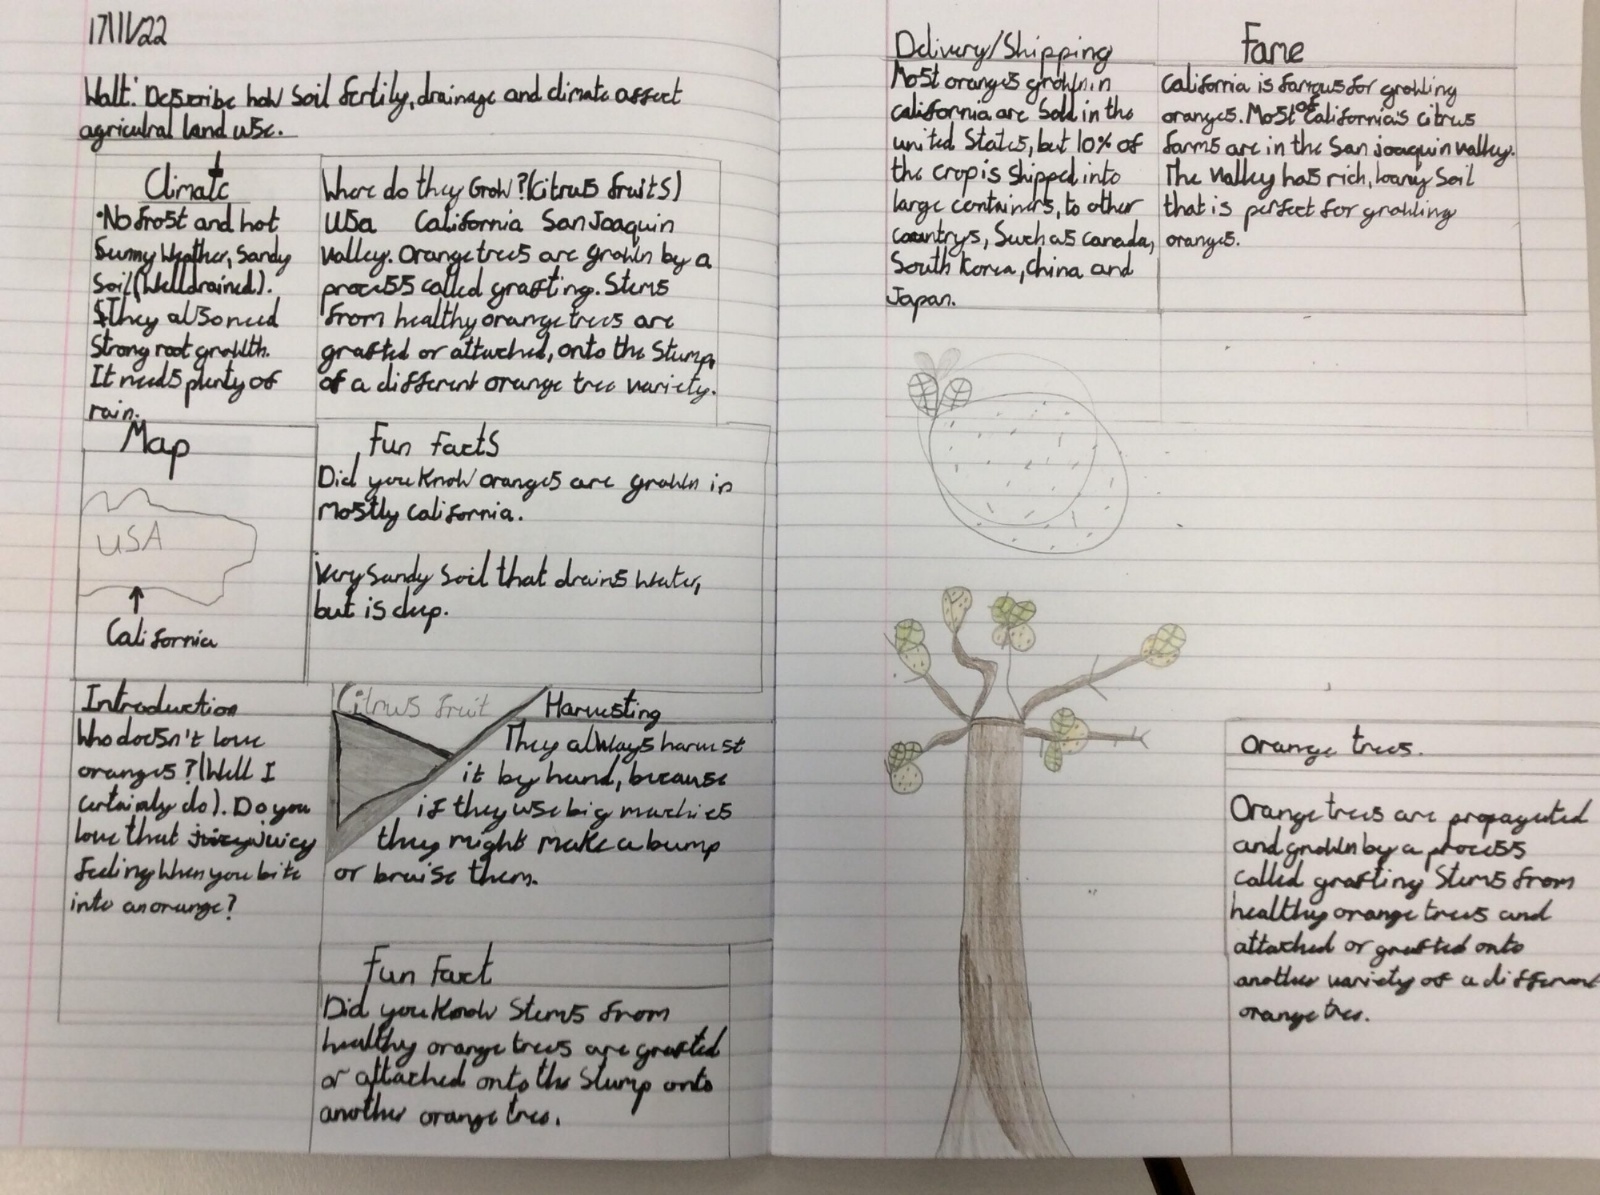 17/11/22
Walt: Describe how soil fertily, drainage and climate affect
agricultral land use.
Climate
•No frost and hot
Sunny Weather, Sandy
Soil (Well drained).
They also need
Strong root growth.
It needs plenty of
rain.
Where do they Grow? (Citrus fruits)
Usa California San Joaquin
Valley. Orange trees are grown by a
process called grafting. Stems
from healthy orange trees are
grafted or attached, onto the Stump,
of a different orange tree variety.
Map
USA
California
Fun Facts
Did you Know oranges are grown in
mostly California.
Very Sandy Soil that drains water,
but is deep.
Introduction
Who doesn't love
oranges? (Well I
certainly do). Do you
love that juicy juicy
feeling when you bite
into an orange?
Citrus fruit
Harvesting
They always harvest
it by hand, because
if they use big machies
they might make a bump
or bruise them.
Fun Fact
Did you Know Stems from
healthy orange trees are grafted
or attached onto the Stump onto
another orange tree.
Delivery/Shipping
Most oranges grown in
california are Sold in the
united States, but 10% of
the crop is Shipped into
large containers, to other
countrys, Such as Canada,
South Korea, China and
Japan.
Fame
California is famous for growing
oranges. Most of California's citrus
farms are in the San joaquin valley.
The Valley has rich, loamy Soil
that is perfect for growing
oranges.
Orange trees.
Orange trees are propagated
and grown by a process
called grafting Stems from
healthy orange trees and
attached or grafted onto
another variety of a different
orange tree.